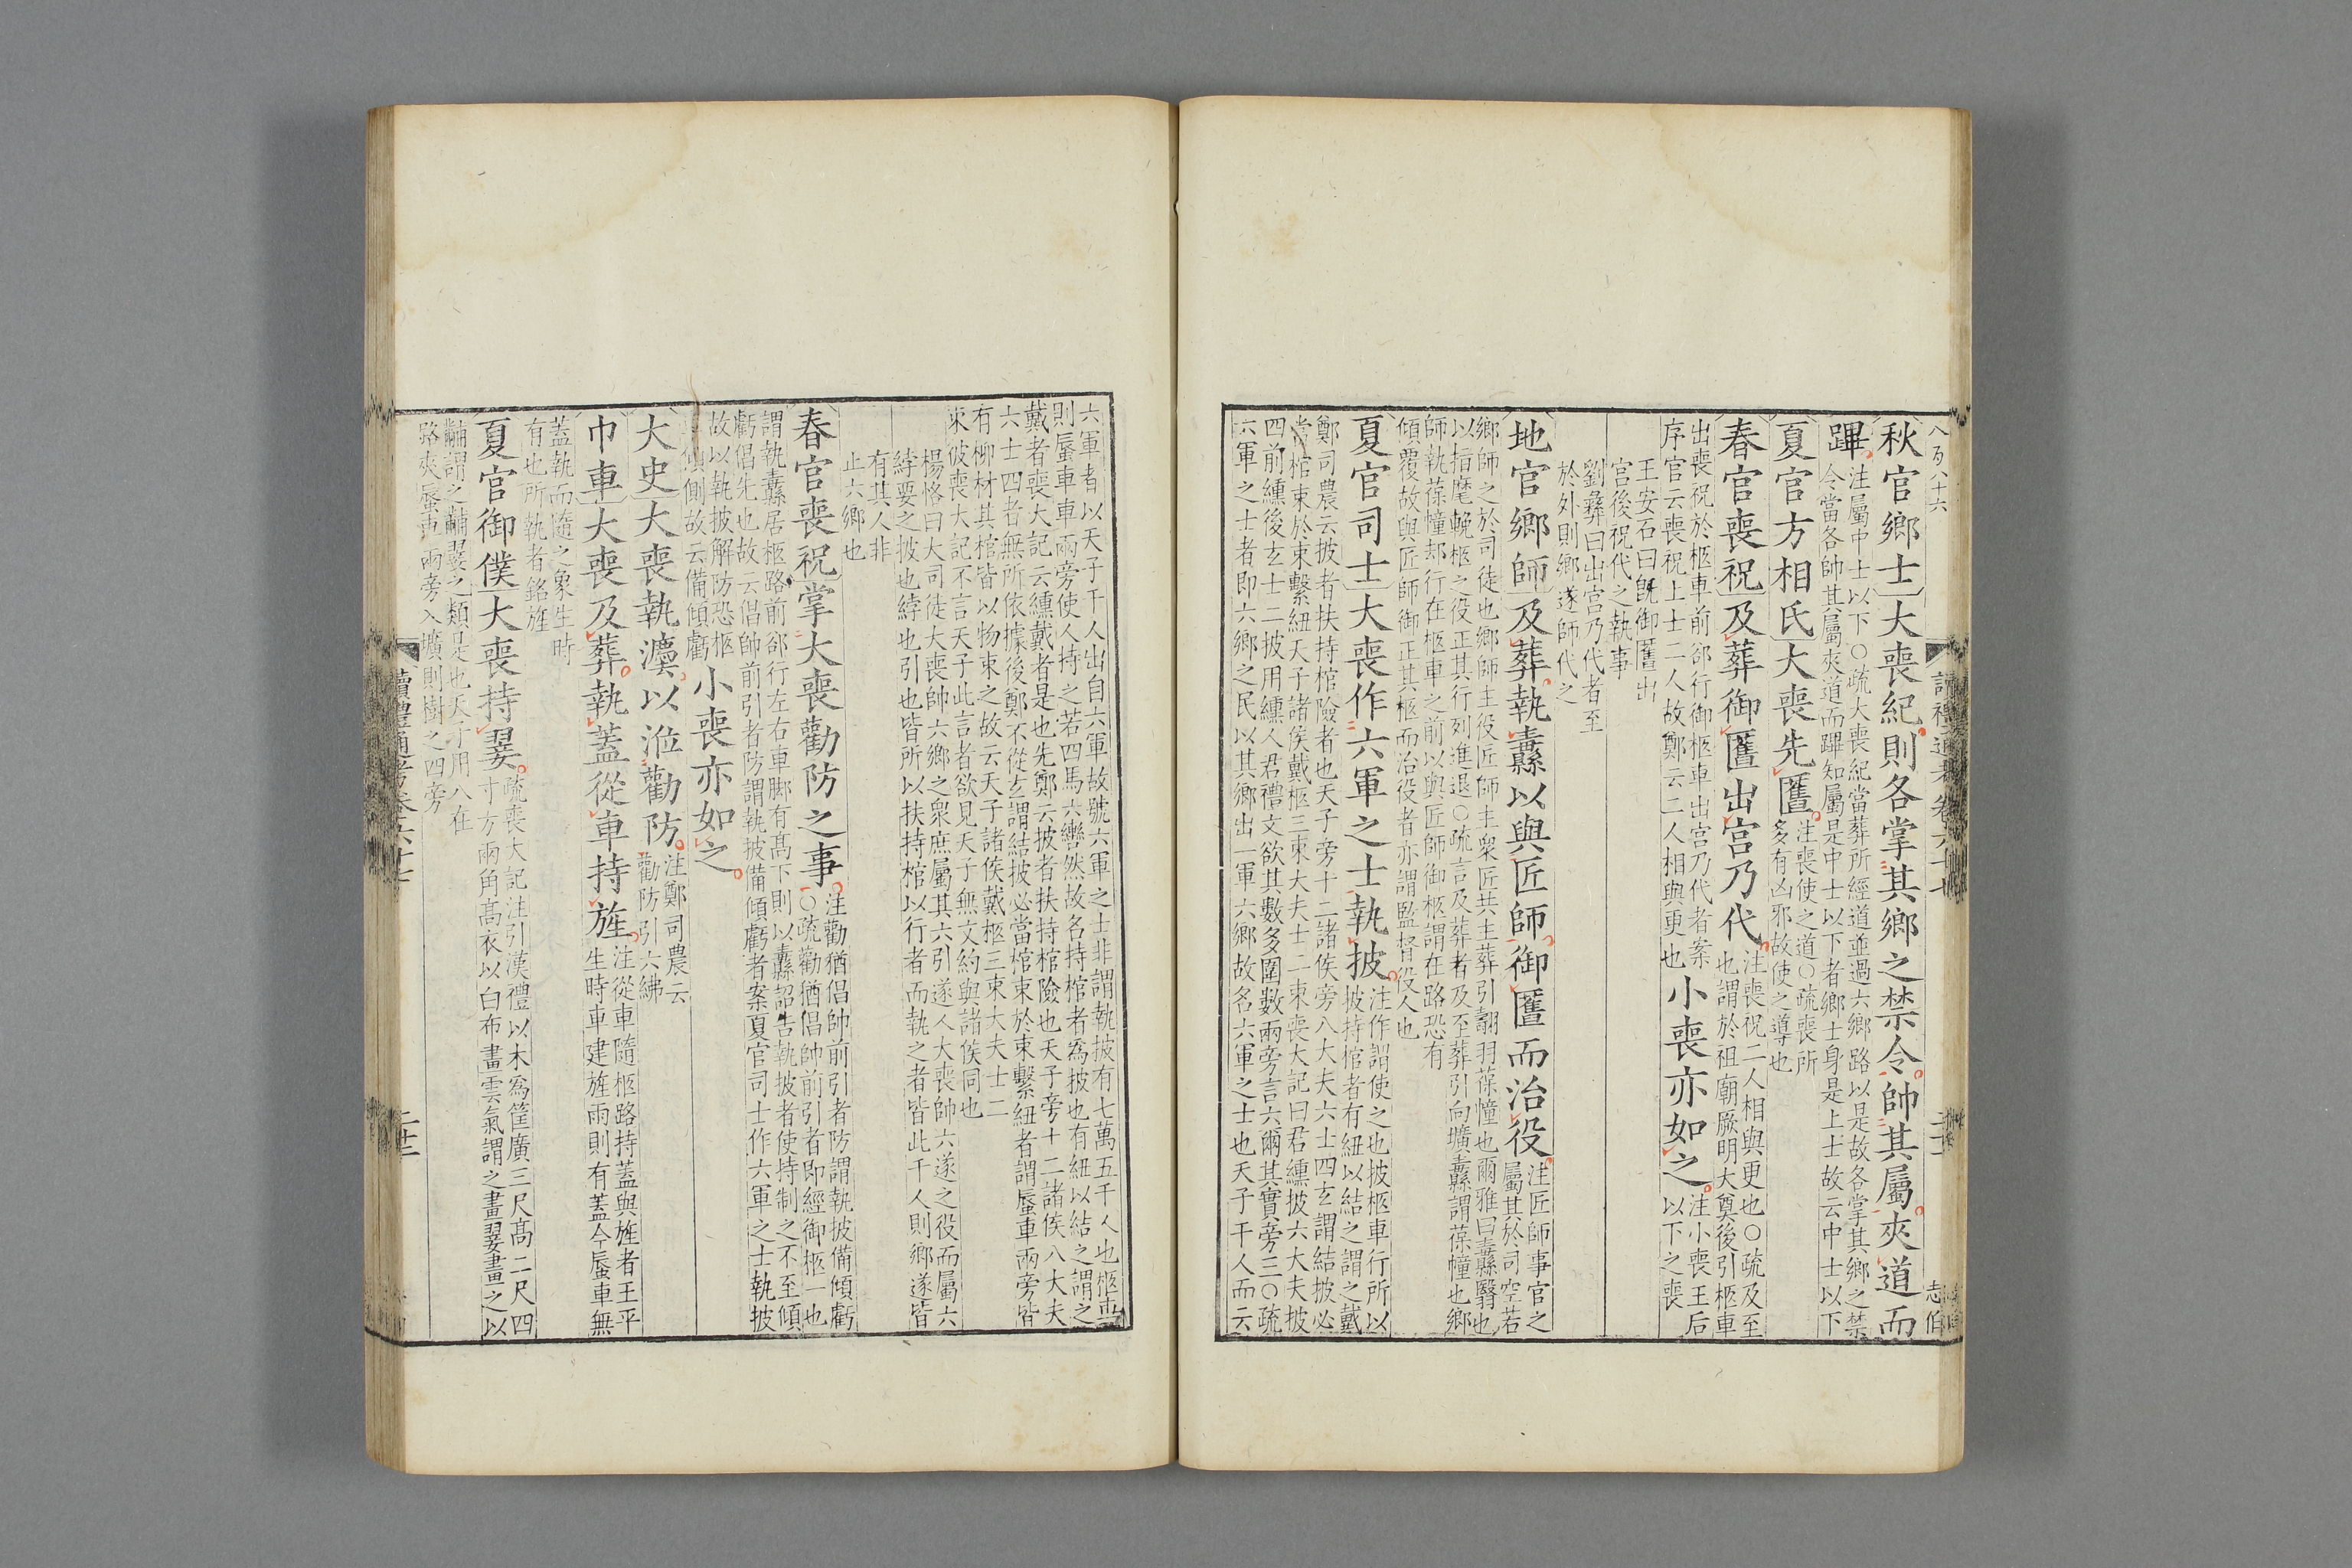 秋官鄉士大喪紀則各掌其鄉之禁令帥其屬夾道而
蹕注屬中士以下○疏大喪紀當葬所經道並過六鄉路以是故各掌其鄉之禁
令當各帥其屬夾道而蹕知屬是中士以下者鄉士身是上士故云中士以下
夏官方相氏大喪先匶注喪使之道○疏喪所
多有凶邪故使之導也
春官喪祝及葬御匶出宮乃代注喪祝二人相與更也○疏及至
也謂於祖廟厥明大奠後引柩車
出喪祝於柩車前卻行御柩車出宮乃代者案
序官云喪祝上士二人故鄭云二人相與更也
小喪亦如之注小喪王后
以下之喪
王安石曰旣御匶出
宮後祝代之執事
劉彝曰出宮乃代者至
於外則鄉遂師代之
地官鄉師及葬執纛以與匠師御匶而治役注匠師事官之
屬其於司空若
鄉師之於司徒也鄉師主役匠師主衆匠共主葬引翿羽葆幢也爾雅曰纛翳也
以指麾輓柩之役正其行列進退○疏言及葬者及至葬引向壙纛謂葆幢也鄉
師執葆幢却行在柩車之前以與匠師御柩謂在路恐有
傾覆故與匠師御正其柩而治役者亦謂監督役人也
夏官司士大喪作六軍之士執披注作謂使之也披柩車行所以
披持棺者有紐以結之謂之戴
鄭司農云披者扶持棺險者也天子旁十二諸侯旁八大夫六士四玄謂結披必
當棺束於束繫紐天子諸侯戴柩三束大夫士二束喪大記曰君纁披六大夫披
四前纁後玄士二披用纁人君禮文欲其數多圍數兩旁言六爾其實旁三○疏
六軍之士者即六鄉之民以其鄉出一軍六鄉故名六軍之士也天子千人而云
讀禮通考卷六十七
六軍者以天子千人出自六軍故號六軍之士非謂執披有七萬五千人也柩車
則蜃車車兩旁使人持之若四馬六轡然故名持棺者爲披也有紐以結之謂之
戴者喪大記云纁戴者是也先鄭云披者扶持棺險也天子旁十二諸侯八大夫
六士四者無所依據後鄭不從玄謂結披必當棺束於束繫紐者謂蜃車兩旁皆
有柳材其棺皆以物束之故云天子諸侯戴柩三束大夫士二
束彼喪大記不言天子此言者欲見天子無文約與諸侯同也
楊恪曰大司徒大喪帥六鄉之衆庶屬其六引遂人大喪帥六遂之役而屬六
綍要之披也綍也引也皆所以扶持棺以行者而執之者皆此千人則鄉遂皆
有其人非
止六鄉也
春官喪祝掌大喪勸防之事注勸猶倡帥前引者防謂執披備傾虧
○疏勸猶倡帥前引者即經御柩一也
謂執纛居柩路前卻行左右車脚有高下則以纛詔告執披者使持制之不至傾
虧倡先也故云倡帥前引者防謂執披備傾虧者案夏官司士作六軍之士執披
故以執披解防恐柩
傾側故云備傾虧
小喪亦如之
大史大喪執灋以涖勸防注鄭司農云
勸防引六紼
巾車大喪及葬執蓋從車持旌注從車隨柩路持蓋與旌者王平
生時車建旌雨則有蓋今蜃車無
蓋執而隨之象生時
有也所執者銘旌
夏官御僕大喪持翣疏喪大記注引漢禮以木爲筐廣三尺高二尺四
寸方兩角高衣以白布畫雲氣謂之畫翣畫之以
黼謂之黼翣之類是也天子用八在
路夾蜃車兩旁入壙則樹之四旁
讀禮通考卷六十七